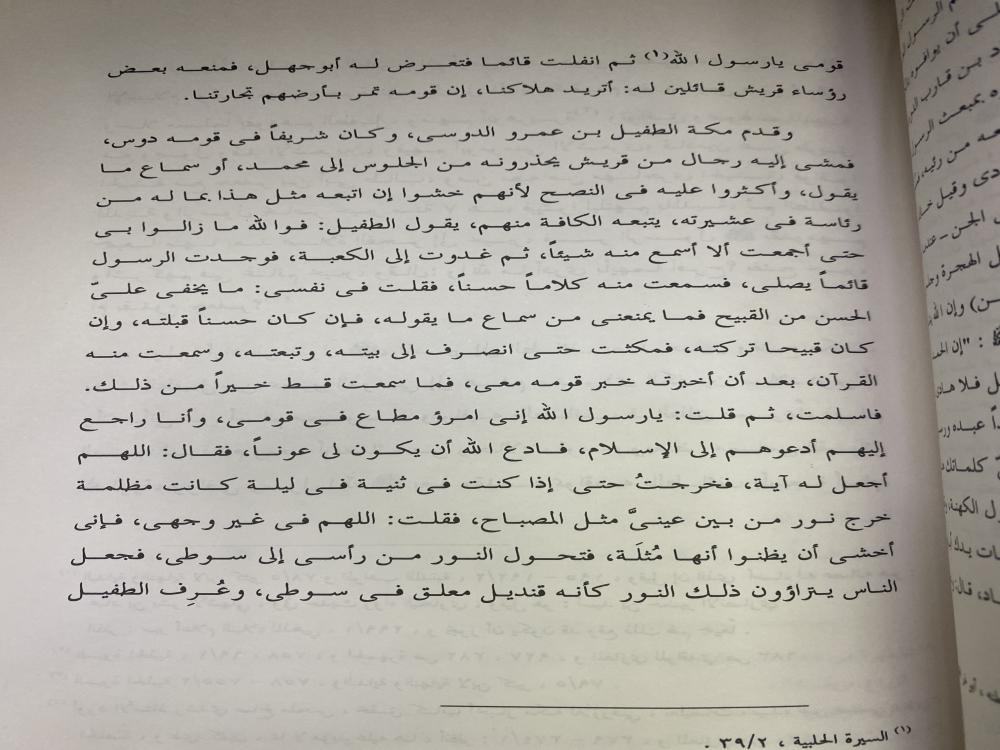 قومى يارسول الله(١) ثم انفلت قائما فتعرض له أبوجهل، فمنعه بعض
رؤساء قريش قائلين له: أتريد هلاكنا، إن قومه تمر بأرضهم تجارتنا.
وقدم مكة الطفيل بن عمرو الدوسى، وكان شريفاً فى قومه دوس،
فمشى إليه رجال من قريش يحذرونه من الجلوس إلى محمد، أو سماع ما
يقول، وأكثروا عليه فى النصح لأنهم خشوا إن اتبعه مثل هذا بما له من
رئاسة فى عشيرته، يتبعه الكافة منهم، يقول الطفيل: فوالله ما زالوا بى
حتى أجمعت ألا أسمع منه شيئاً، ثم غدوت إلى الكعبة، فوجدت الرسول
قائماً يصلى، فسمعت منه كلاماً حسناً، فقلت فى نفسى: ما يخفى علىّ
الحسن من القبيح فما يمنعنى من سماع ما يقوله، فإن كان حسناً قبلته، وإن
كان قبيحا تركته، فمكثت حتى انصرف إلى بيته، وتبعته، وسمعت منه
القرآن، بعد أن أخبرته خبر قومه معى، فما سمعت قط خيراً من ذلك.
فاسلمت، ثم قلت: يارسول الله إنى امرؤ مطاع فى قومى، وأنا راجع
إليهم أدعوهم إلى الإسلام، فادع الله أن يكون لى عوناً، فقال: اللهم
أجعل له آية، فخرجتُ حتى إذا كنت فى ثنية فى ليلة كانت مظلمة
خرج نور من بين عينىَّ مثل المصباح، فقلت: اللهم فى غير وجهى، فإنى
أخشى أن يظنوا أنها مُثلَة، فتحول النور من رأسى إلى سوطى، فجعل
الناس يتراؤون ذلك النور كأنه قنديل معلق فى سوطى، وعُرِف الطفيل
(١) السيرة الحلبية ، ٣٩/٢ .